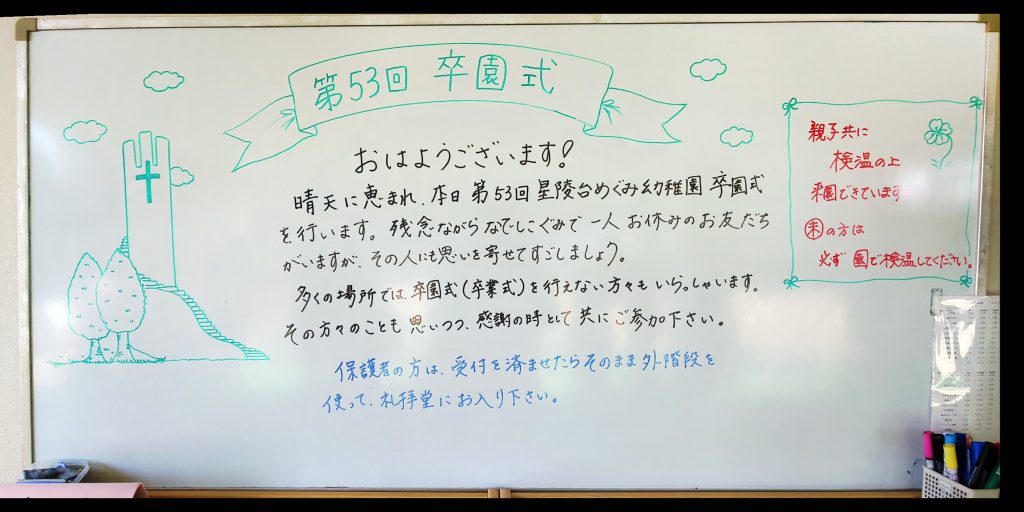 第53回 卒園式
おはようございます!
晴天に恵まれ、本日 第53回 星陵台めぐみ幼稚園 卒園式
を行います。残念ながらなでしこぐみで 一人 お休みのお友だち
がいますが、その人にも思いを寄せてすごしましょう。
多くの場所では、卒園式(卒業式)を行えない方々も いらっしゃいます。
その方々のことも 思いつつ、感謝の時として 共に ご参加下さい。
保護者の方は、受付を済ませたらそのまま外階段を
使って、礼拝堂にお入り下さい。
親子共に
検温の上
来園できています
未の方は
必ず 園で検温してください。